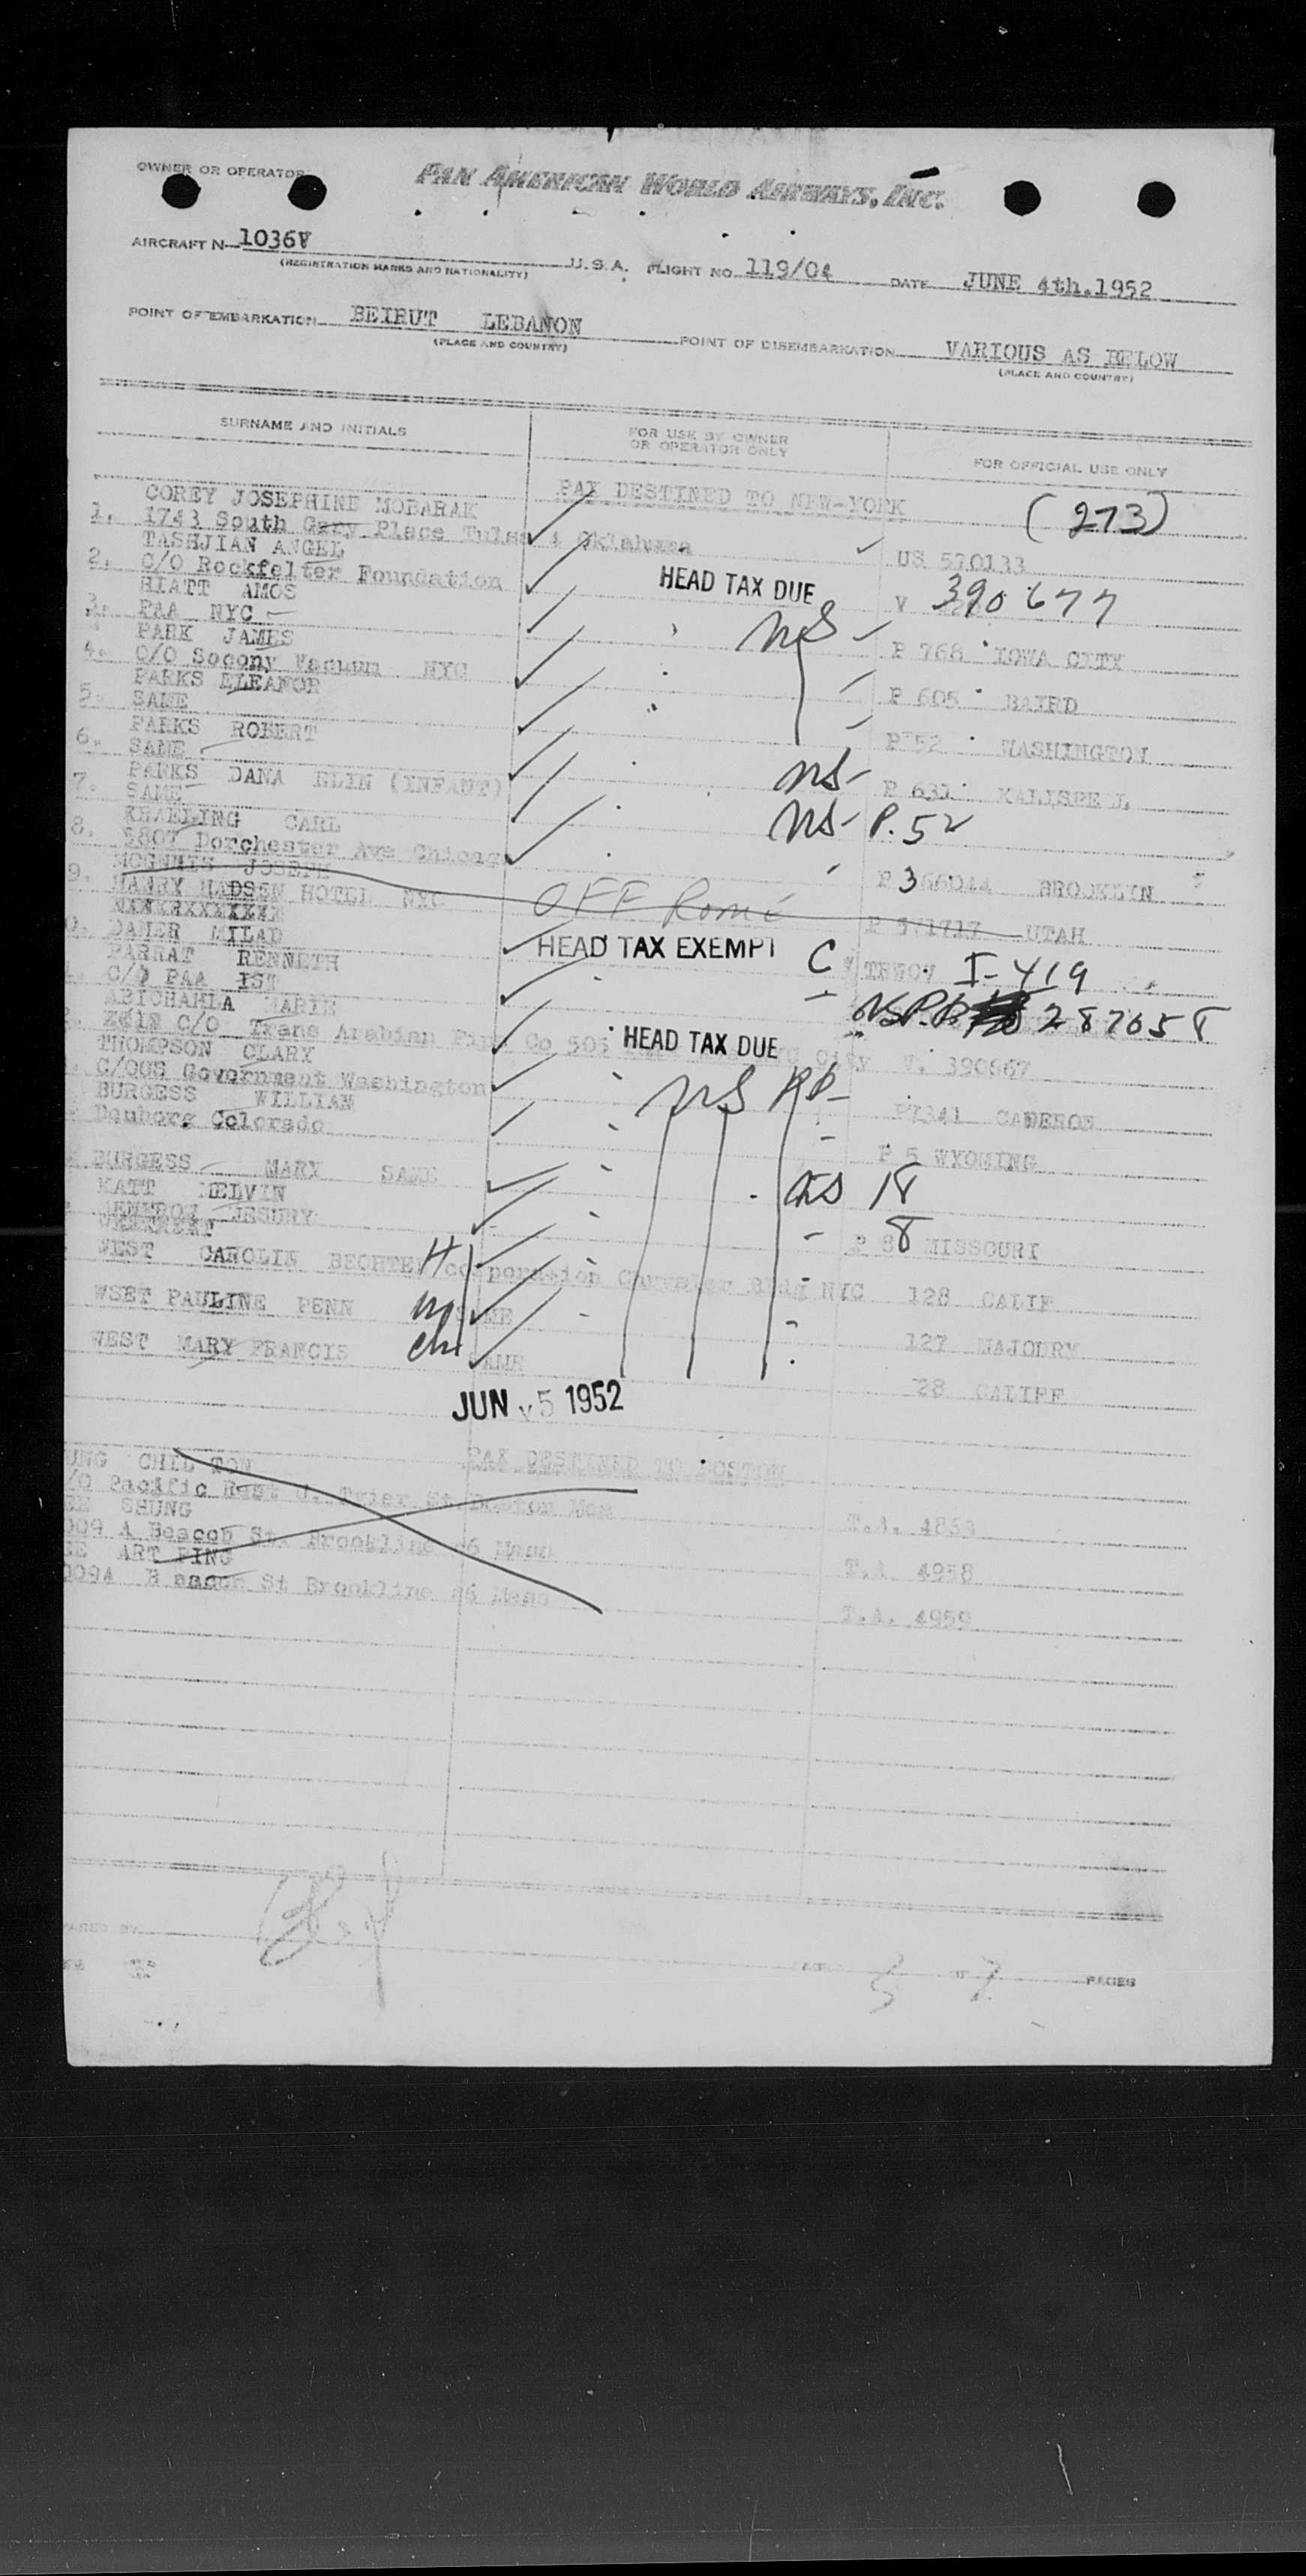 OWNER OR OPERATOR
PAN AMERICAN WORLD AIRWAYS, INC.
AIRCRAFT N 1036V U.S.A. FLIGHT NO. 119/04 DATE JUNE 4th.1952
(REGISTRATION MARKS AND NATIONALITY)
POINT OF EMBARKATION BEIRUT LEBANON POINT OF DISEMBARKATION VARIOUS AS BELOW
(PLACE AND COUNTRY) (PLACE AND COUNTRY)
SURNAME AND INITIALS FOR USE BY OWNER OR OPERATOR ONLY FOR OFFICIAL USE ONLY
PAX DESTINED TO NEW-YORK (273)
COREY JOSEPHINE MOBARAK
1. 1743 South Gary Place Tulsa 4 Oklahama US 570133
TASHJIAN ANGEL
2. C/O Rockfelter Foundation HEAD TAX DUE V 390677
HIATT AMOS
3. PAA NYC NS P 768 IOWA CITY
PARK JAMES
4. C/O Socony Vacuum NYC P 605 BAIRD
PARKS ELEANOR
5. SAME P 52 WASHINGTON
PARKS ROBERT
6. SAME NS P 631 KALISPELL
PARKS DANA ELIN (INFANT)
7. SAME NS P. 52
KRAELING CARL
8. 5807 Dorchester Ave Chicago P 366044 BROOKLYN
MCGENNIS JOSEPH
9. HANRY HADSEN HOTEL NYC OFF Rome P 571717 UTAH
0. DAHER MILAD HEAD TAX EXEMPT C TRWOV I-419
PARRAT KENNETH
C/O PAA IST NSP.P. 287058
ABICHAHLA MARIE
C/O Trans Arabian Pipe Co 505 HEAD TAX DUE City V. 390667
THOMPSON CLARK
C/OUS Government Washington NS PP P7341 CAMERON
BURGESS WILLIAM
Denborg Colorado P 5 WYOMING
BURGESS MARY SAME NS 18
KATT MELVIN
RENTROW JESURY 8
P 88 MISSOURI
WEST CAROLIN BECHTEL H Corporation Chrysler Bldg NYC 128 CALIF
WSET PAULINE PENN SAME 127 MAJOURY
WEST MARY FRANCIS ch SAME 28 CALIFF
JUN 5 1952
PAX DESTINED TO BOSTON
UNG CHIL TON
/O Pacific Rest Tyler St Boston Mas T.A. 4863
EE SHUNG
009 A Beacon St Brookline 46 Mass T.A 4958
EE ART PING
009A Beacon St Brookline 46 Mass T.A. 4959
ARED BY
5 OF 7 PAGES